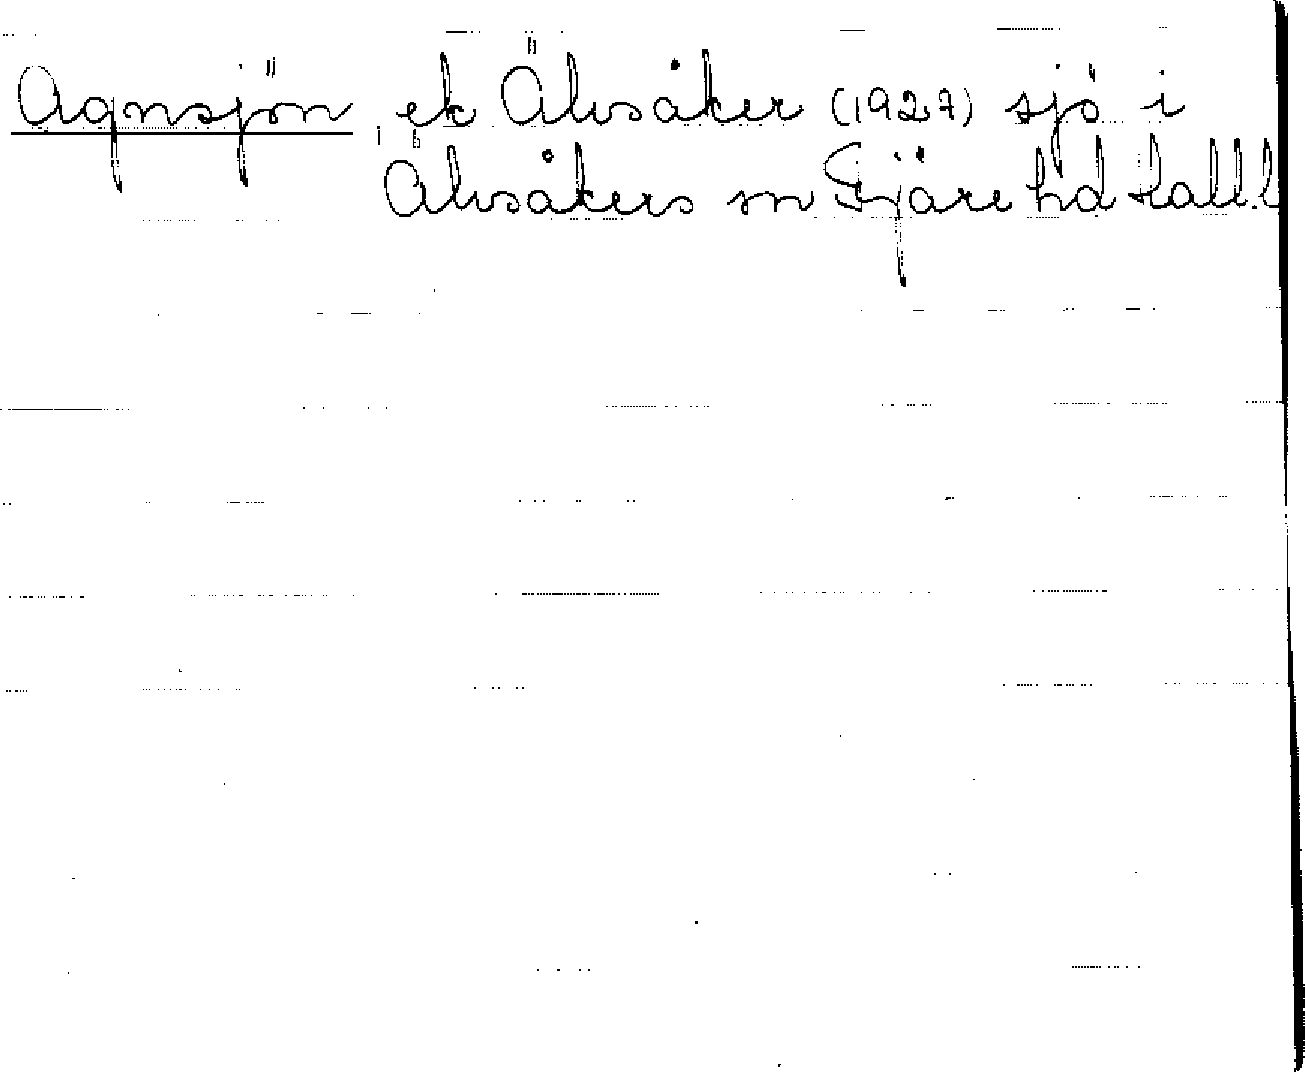 Agnsjön ek Älvsåker (1927) sjö i
Älvsåkers sn Fjäre hd Hall.l